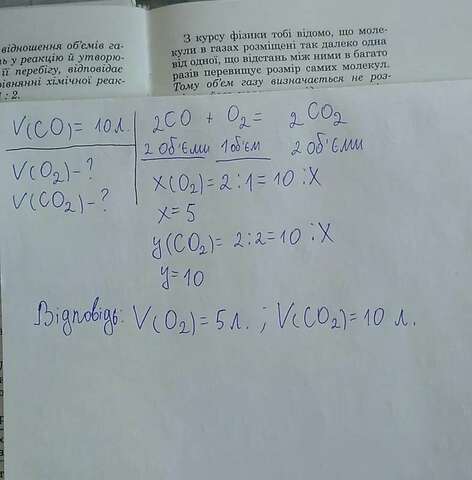 відношення об'ємів га-
ь у реакцію й утворю-
її перебігу, відповідає
рівнянні хімічної реак-
1 : 2.
З курсу фізики тобі відомо, що моле-
кули в газах розміщені так далеко одна
від одної, що відстань між ними в багато
разів перевищує розмір самих молекул.
Тому об'єм газу визначається не роз-
V(CO) = 10 л.
V(O2) - ?
V(CO2) - ?
2CO + O2 = 2CO2
2 об'єми 1 об'єм 2 об'єми
x(O2) = 2 : 1 = 10 : X
x = 5
y(CO2) = 2 : 2 = 10 : X
y = 10
Відповідь: V(O2) = 5 л. ; V(CO2) = 10 л.